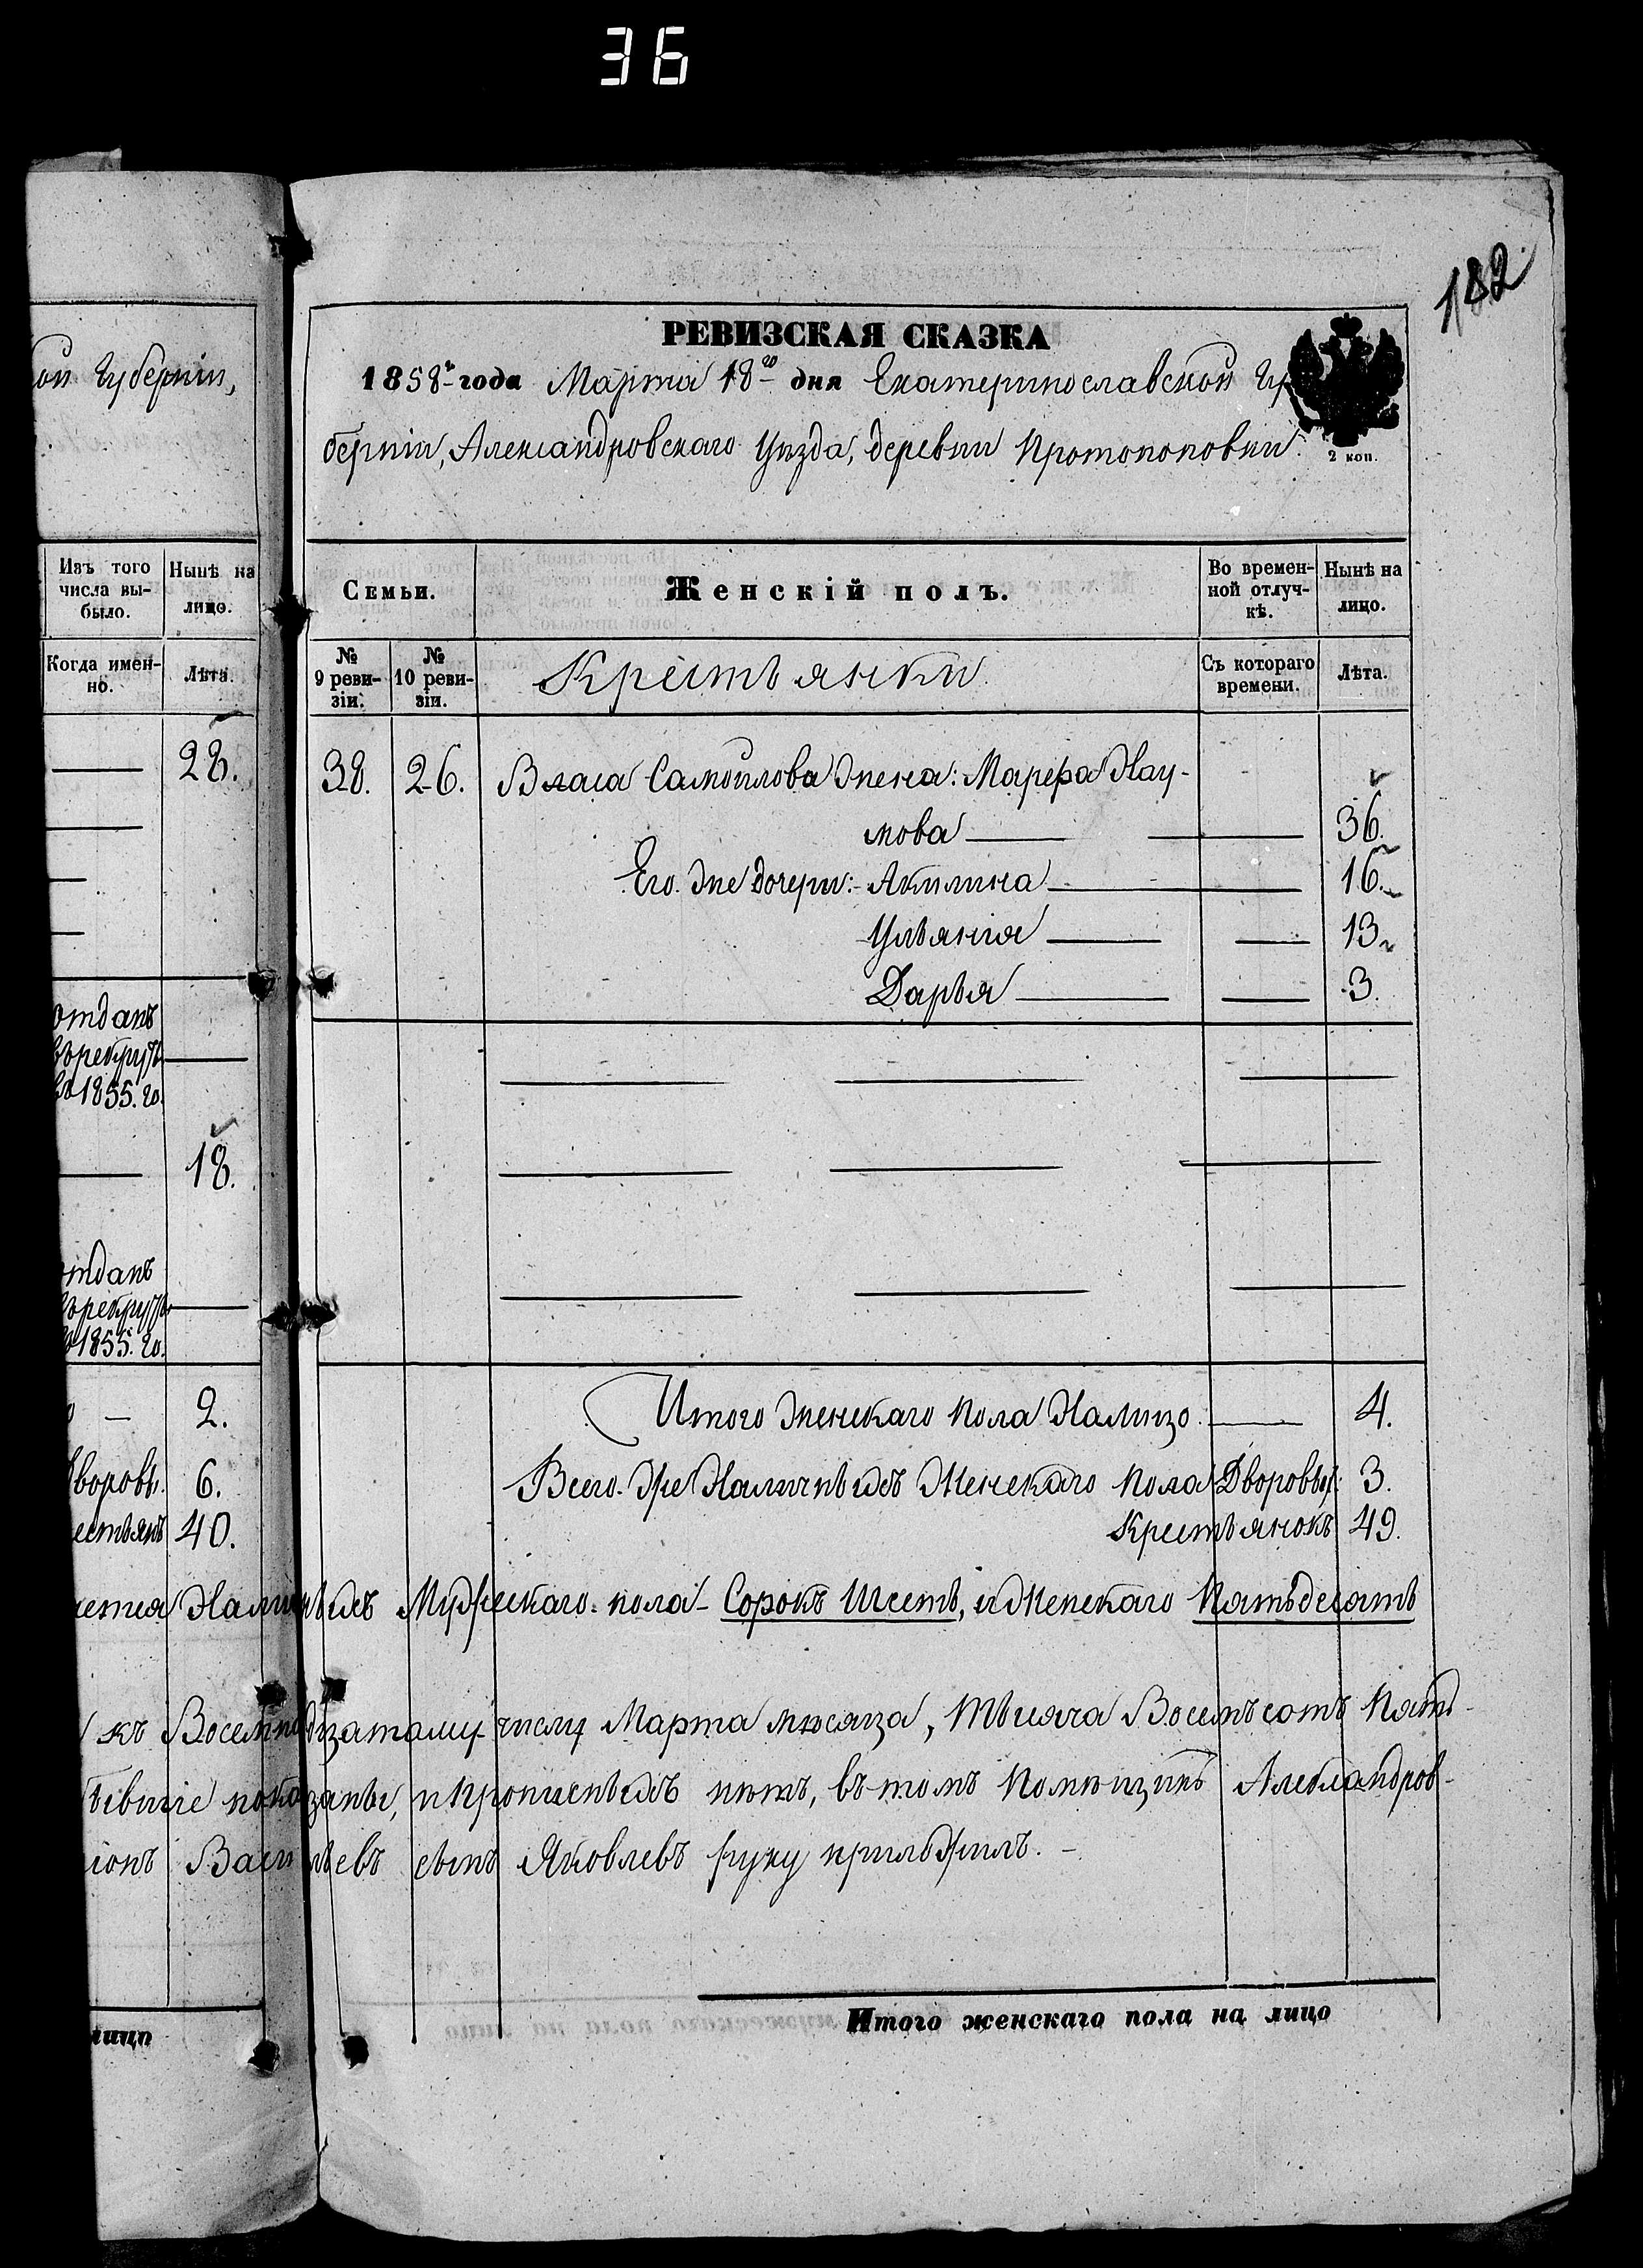 36
182
ой Губерніи,
Изъ того числа вы-было.
Нынѣ на лицо.
Когда имен-но.
Лѣта.
28.
отданъ
въ рекруты
въ 1855. го.
18.
отданъ
въ рекруты
въ 1855. го.
2.
6.
40.
лицо
РЕВИЗСКАЯ СКАЗКА
1858го года Марта 18го дня Екатеринославской Гу
берніи, Александровскаго Уѣзда, деревни Протопоповки.
2 коп.
Семьи.
Женскій полъ.
Во времен-ной отлуч-кѣ.
Нынѣ на лицо.
№ 9 реви-зіи.
№ 10 реви-зіи.
Крестьянки.
Съ котораго времени.
Лѣта.
38. 26. Власа Самойлова жена: Марфа Нау-
мова 36.
Его же дочери: Акилина 16.
Ульянія 13
Дарья 3.
Итого женскаго пола Налицо. 4.
Всего же Наличныхъ Женскаго пола Дворовых: 3.
Крестьянокъ 49.
Наличныхъ Мужескаго пола Сорокъ Шесть, и Женскаго Пятьдесять
къ Восемнадцатому числу Марта мѣсяца, Тысяча Восемьсотъ Пять-
показаны, и пропущенныхъ нѣтъ, въ томъ Помѣщикъ Александров-
Васильевъ сынъ Яковлевъ руку приложилъ.
Итого женскаго пола на лицо